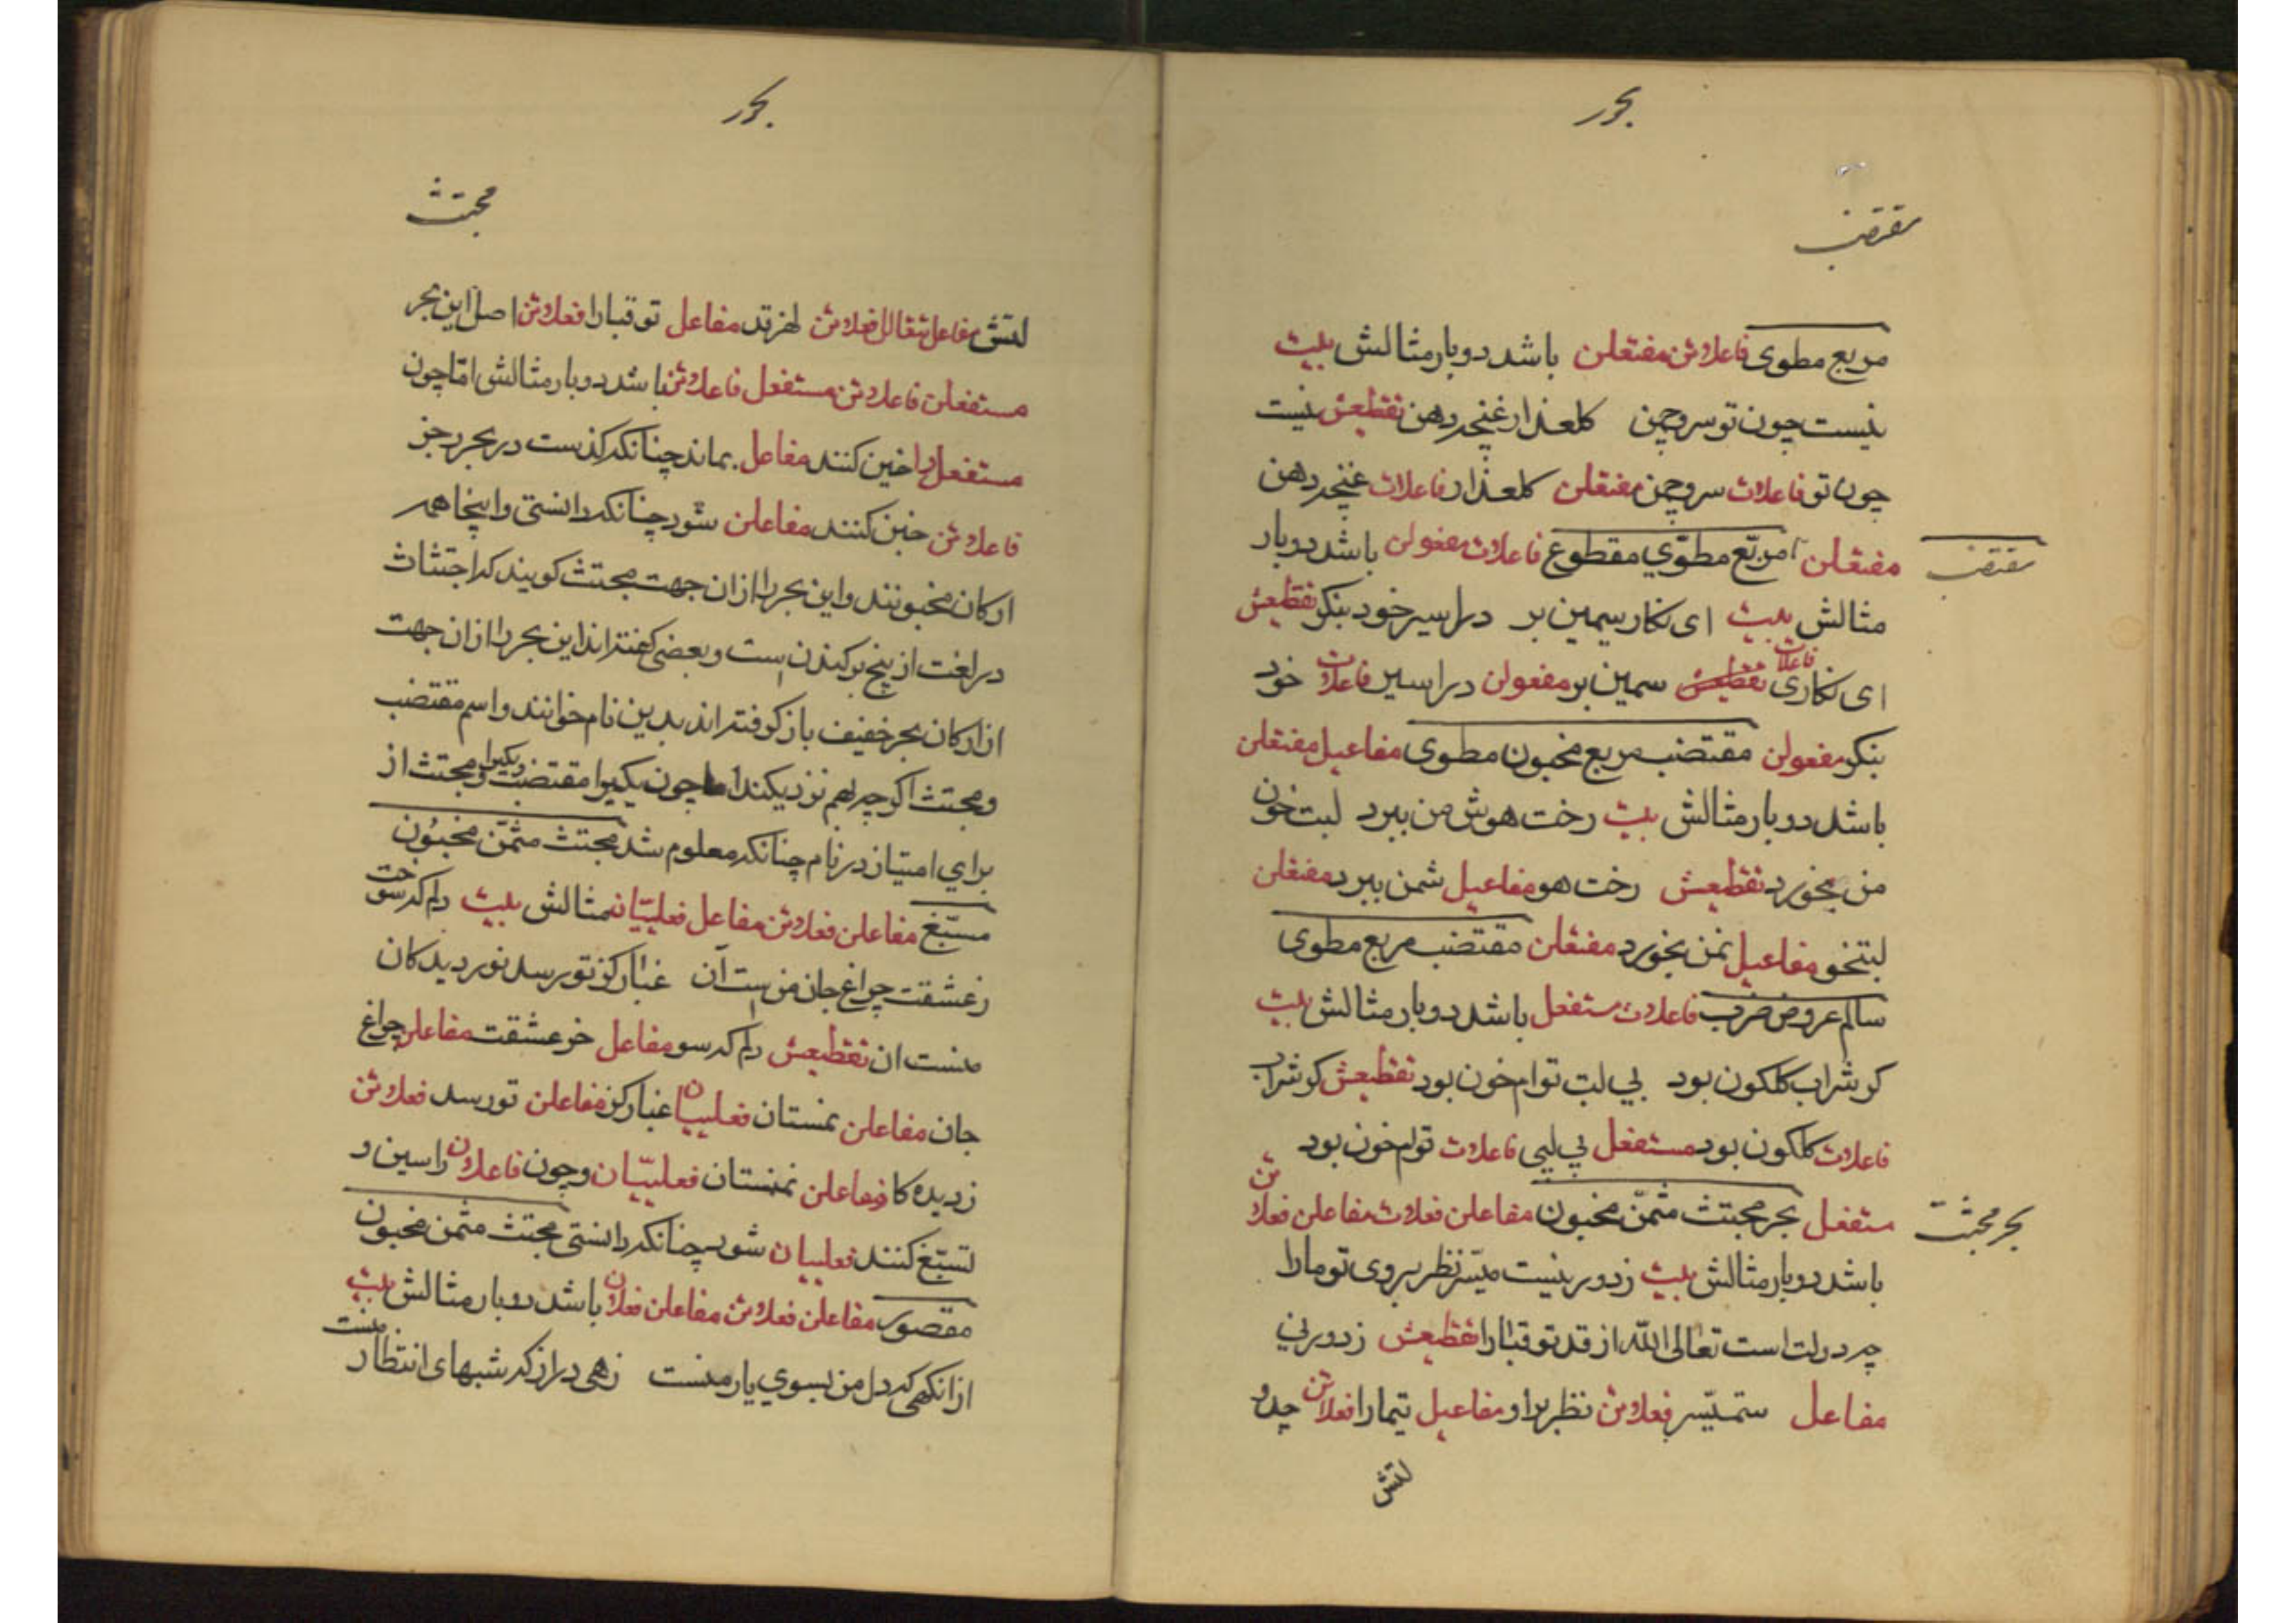 بحور
مقتضب
مربع مطوی فاعلاتن مفتعلن باشد دوبار مثالش بیت
نیست چون تو سرو چمن کلعذار غنچه دهن تقطیعش نیست
چون تو فاعلات سرو چمن مفتعلن کلعذار فاعلات غنچه دهن
مفتعلن مربّع مطوّي مقطوع فاعلات مفعولن باشد دوبار
مقتضب
مثالش بیت ای نکار سیمین بر در اسیر خود بنکر تقطیعش
ای نکاری فاعلات تقطیعش سیمین بر مفعولن در اسین فاعلات خود
بنکر مفعولن مقتضب مربع مخبون مطوی مفاعیل مفتعلن
باشد دوبار مثالش بیت رخت هوش من ببرد لبت خون
من بخورد تقطیعش رخت هو مفاعیل شمن ببرد مفتعلن
لبتخو مفاعیل نمن بخورد مفتعلن مقتضب مربع مطوی
سالم عروض ضرب فاعلات مستفعل باشد دوبار مثالش بیت
کو شراب کلکون بود بي لبت توام خون بود تقطیعش کو شراب
فاعلات کلکون بود مستفعل بي لبی فاعلات توام خون بود
مستفعل بحر مجتث مثمّن مخبون مفاعلن فعلات مفاعلن فعلاتن
بحر مجتث
باشد دوبار مثالش بیت ز دور نیست میسّر نظر بروی تو مارا
چه دولت است تعالی الله از قد تو قبا را تقطیعش ز دور ني
مفاعل ستمیسّر فعلاتن نظر براو مفاعیل یتمارا فعلاتن چدو
لتش
بحور
مجتث
لتش مفاعل تتعالل فعلاتن لهز قد مفاعل تو قبارا فعلاتن اصل این بحر
مستفعلن فاعلاتن مستفعل فاعلاتن باشد دوبار مثالش امّا چون
مستفعل را خبن کنند مفاعل بماند چنانکه کذست در بحر رجز
فاعلاتن خبن کنند مفاعلن شود چنانکه دانستی واینجا همه
ارکان مخبونند واین بحر را ازان جهت مجتث کویند که اجتثاث
در لغت از بیخ بر کندن است وبعضی کفته اند این بحر را ازان جهت
از ارکان بحر خفیف باز کرفته اند بدین نام خوانند واسم مقتضب
ومجتث اکرچه بهم نزدیکند اما چون یکیرا مقتضب ودیکیرا مجتث از
براي امتیاز در نام چنانکه معلوم شد مجتث مثمّن مخبُون
مسبّغ مفاعلن فعلاتن مفاعل فعلیّان مثالش بیت دلم که سوخت
ز عشقت چراغ جان من ست آن غبار کز تو رسد نور دیدکان
منست ان تقطیعش دلم که سو مفاعل خز عشقت مفاعلن چراغ
جان مفاعلن نمستان فعلییان غبار کز مفاعلن تو رسد فعلاتن
ز دیده کا مفاعلن نمنستان فعلییّان وچون فاعلاتن را سین و
تسبّغ کنند فعلییان شود چنانکه دانستی مجتث مثمن مخبون
مقصور مفاعلن فعلاتن مفاعلن فعلان باشد دوبار مثالش بیت
ازانکهی که دل من بسوي یار منست زهی دراز که شبهای انتظار منست